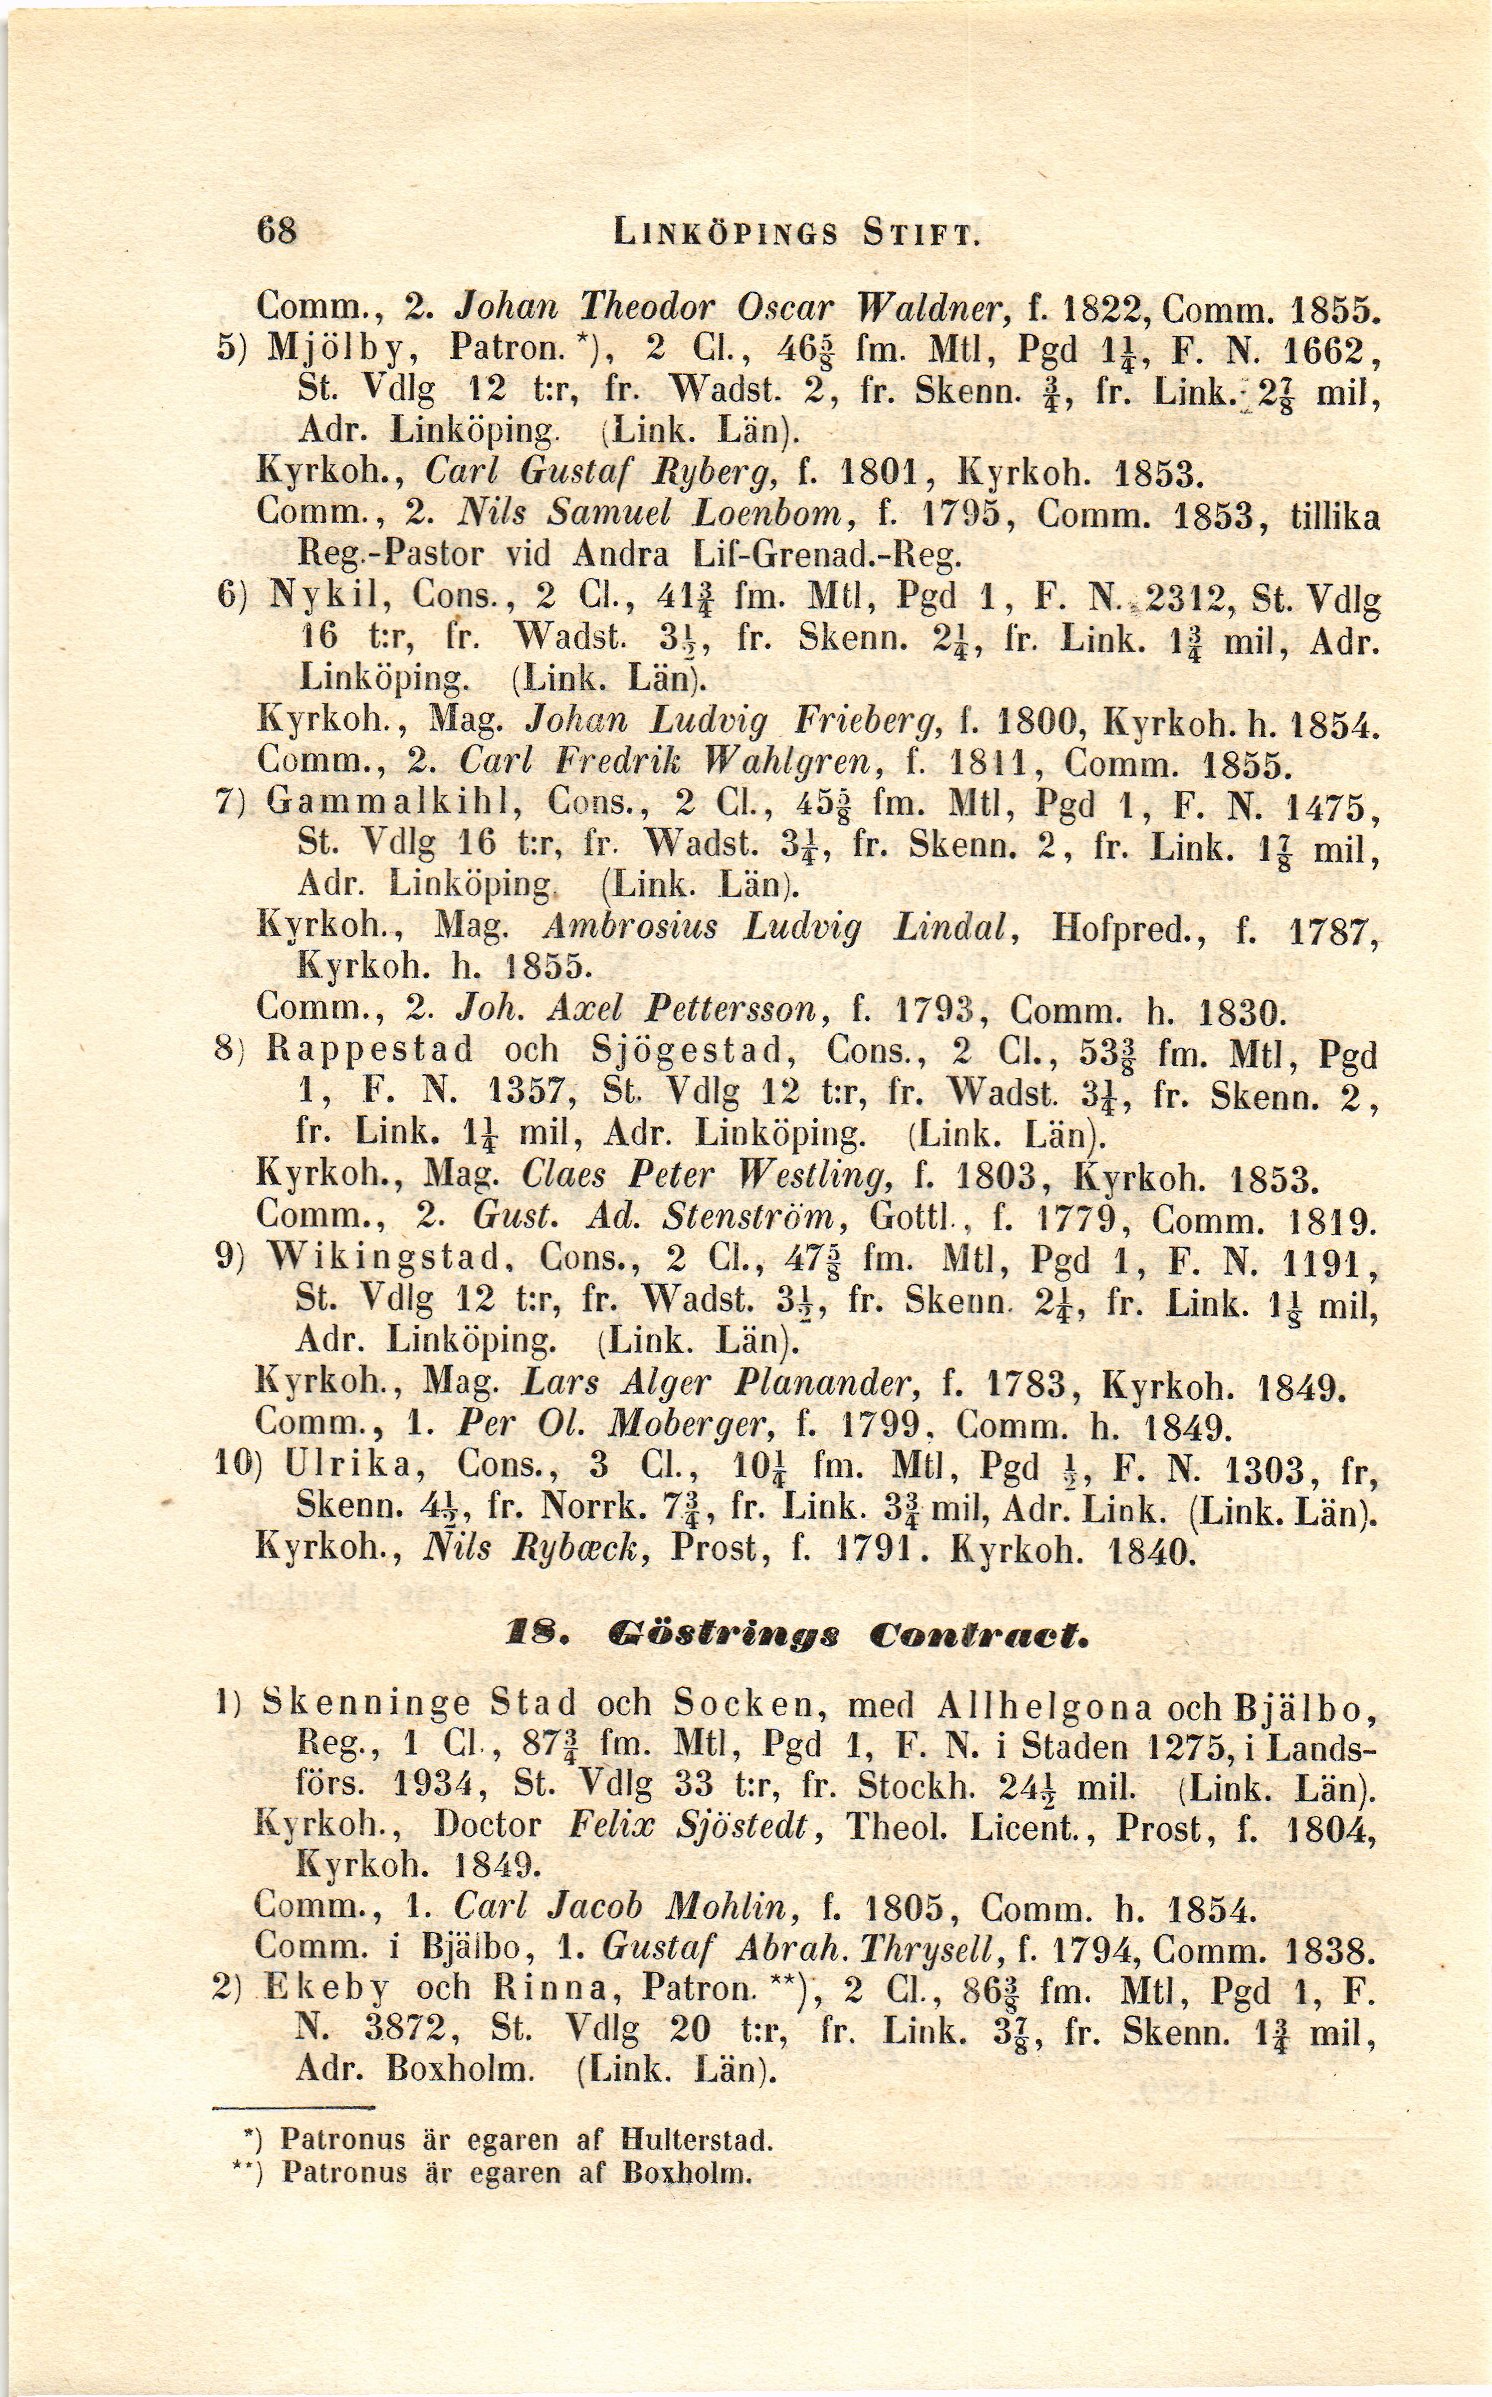 68 LINKÖPINGS STIFT.
Comm., 2. Johan Theodor Oscar Waldner, f. 1822, Comm. 1855.
5) Mjölby, Patron. *), 2 Cl., 46⅝ fm. Mtl, Pgd 1¼, F. N. 1662,
St. Vdlg 12 t:r, fr. Wadst. 2, fr. Skenn. ¾, fr. Link. 2⅞ mil,
Adr. Linköping. (Link. Län).
Kyrkoh., Carl Gustaf Ryberg, f. 1801, Kyrkoh. 1853.
Comm., 2. Nils Samuel Loenbom, f. 1795, Comm. 1853, tillika
Reg.-Pastor vid Andra Lif-Grenad.-Reg.
6) Nykil, Cons., 2 Cl., 41¾ fm. Mtl, Pgd 1, F. N. 2312, St. Vdlg
16 t:r, fr. Wadst. 3½, fr. Skenn. 2¼, fr. Link. 1¾ mil, Adr.
Linköping. (Link. Län).
Kyrkoh., Mag. Johan Ludvig Frieberg, f. 1800, Kyrkoh. h. 1854.
Comm., 2. Carl Fredrik Wahlgren, f. 1811, Comm. 1855.
7) Gammalkihl, Cons., 2 Cl., 45⅝ fm. Mtl, Pgd 1, F. N. 1475,
St. Vdlg 16 t:r, fr. Wadst. 3¼, fr. Skenn. 2, fr. Link. 1⅞ mil,
Adr. Linköping. (Link. Län).
Kyrkoh., Mag. Ambrosius Ludvig Lindal, Hofpred., f. 1787,
Kyrkoh. h. 1855.
Comm., 2. Joh. Axel Pettersson, f. 1793, Comm. h. 1830.
8) Rappestad och Sjögestad, Cons., 2 Cl., 53⅜ fm. Mtl, Pgd
1, F. N. 1357, St. Vdlg 12 t:r, fr. Wadst. 3¼, fr. Skenn. 2,
fr. Link. 1¼ mil, Adr. Linköping. (Link. Län).
Kyrkoh., Mag. Claes Peter Westling, f. 1803, Kyrkoh. 1853.
Comm., 2. Gust. Ad. Stenström, Gottl., f. 1779, Comm. 1819.
9) Wikingstad, Cons., 2 Cl., 47⅝ fm. Mtl, Pgd 1, F. N. 1191,
St. Vdlg 12 t:r, fr. Wadst. 3½, fr. Skenn. 2¼, fr. Link. 1⅛ mil,
Adr. Linköping. (Link. Län).
Kyrkoh., Mag. Lars Alger Planander, f. 1783, Kyrkoh. 1849.
Comm., 1. Per Ol. Moberger, f. 1799, Comm. h. 1849.
10) Ulrika, Cons., 3 Cl., 10¼ fm. Mtl, Pgd ½, F. N. 1303, fr,
Skenn. 4½, fr. Norrk. 7¾, fr. Link. 3¾ mil, Adr. Link. (Link. Län).
Kyrkoh., Nils Rybæck, Prost, f. 1791. Kyrkoh. 1840.
18. Göstrings Contract.
1) Skenninge Stad och Socken, med Allhelgona och Bjälbo,
Reg., 1 Cl., 87¾ fm. Mtl, Pgd 1, F. N. i Staden 1275, i Lands-
förs. 1934, St. Vdlg 33 t:r, fr. Stockh. 24½ mil. (Link. Län).
Kyrkoh., Doctor Felix Sjöstedt, Theol. Licent., Prost, f. 1804,
Kyrkoh. 1849.
Comm., 1. Carl Jacob Mohlin, f. 1805, Comm. h. 1854.
Comm. i Bjälbo, 1. Gustaf Abrah. Thrysell, f. 1794, Comm. 1838.
2) Ekeby och Rinna, Patron. **), 2 Cl., 86⅜ fm. Mtl, Pgd 1, F.
N. 3872, St. Vdlg 20 t:r, fr. Link. 3⅞, fr. Skenn. 1¾ mil,
Adr. Boxholm. (Link. Län).
*) Patronus är egaren af Hulterstad.
**) Patronus är egaren af Boxholm.